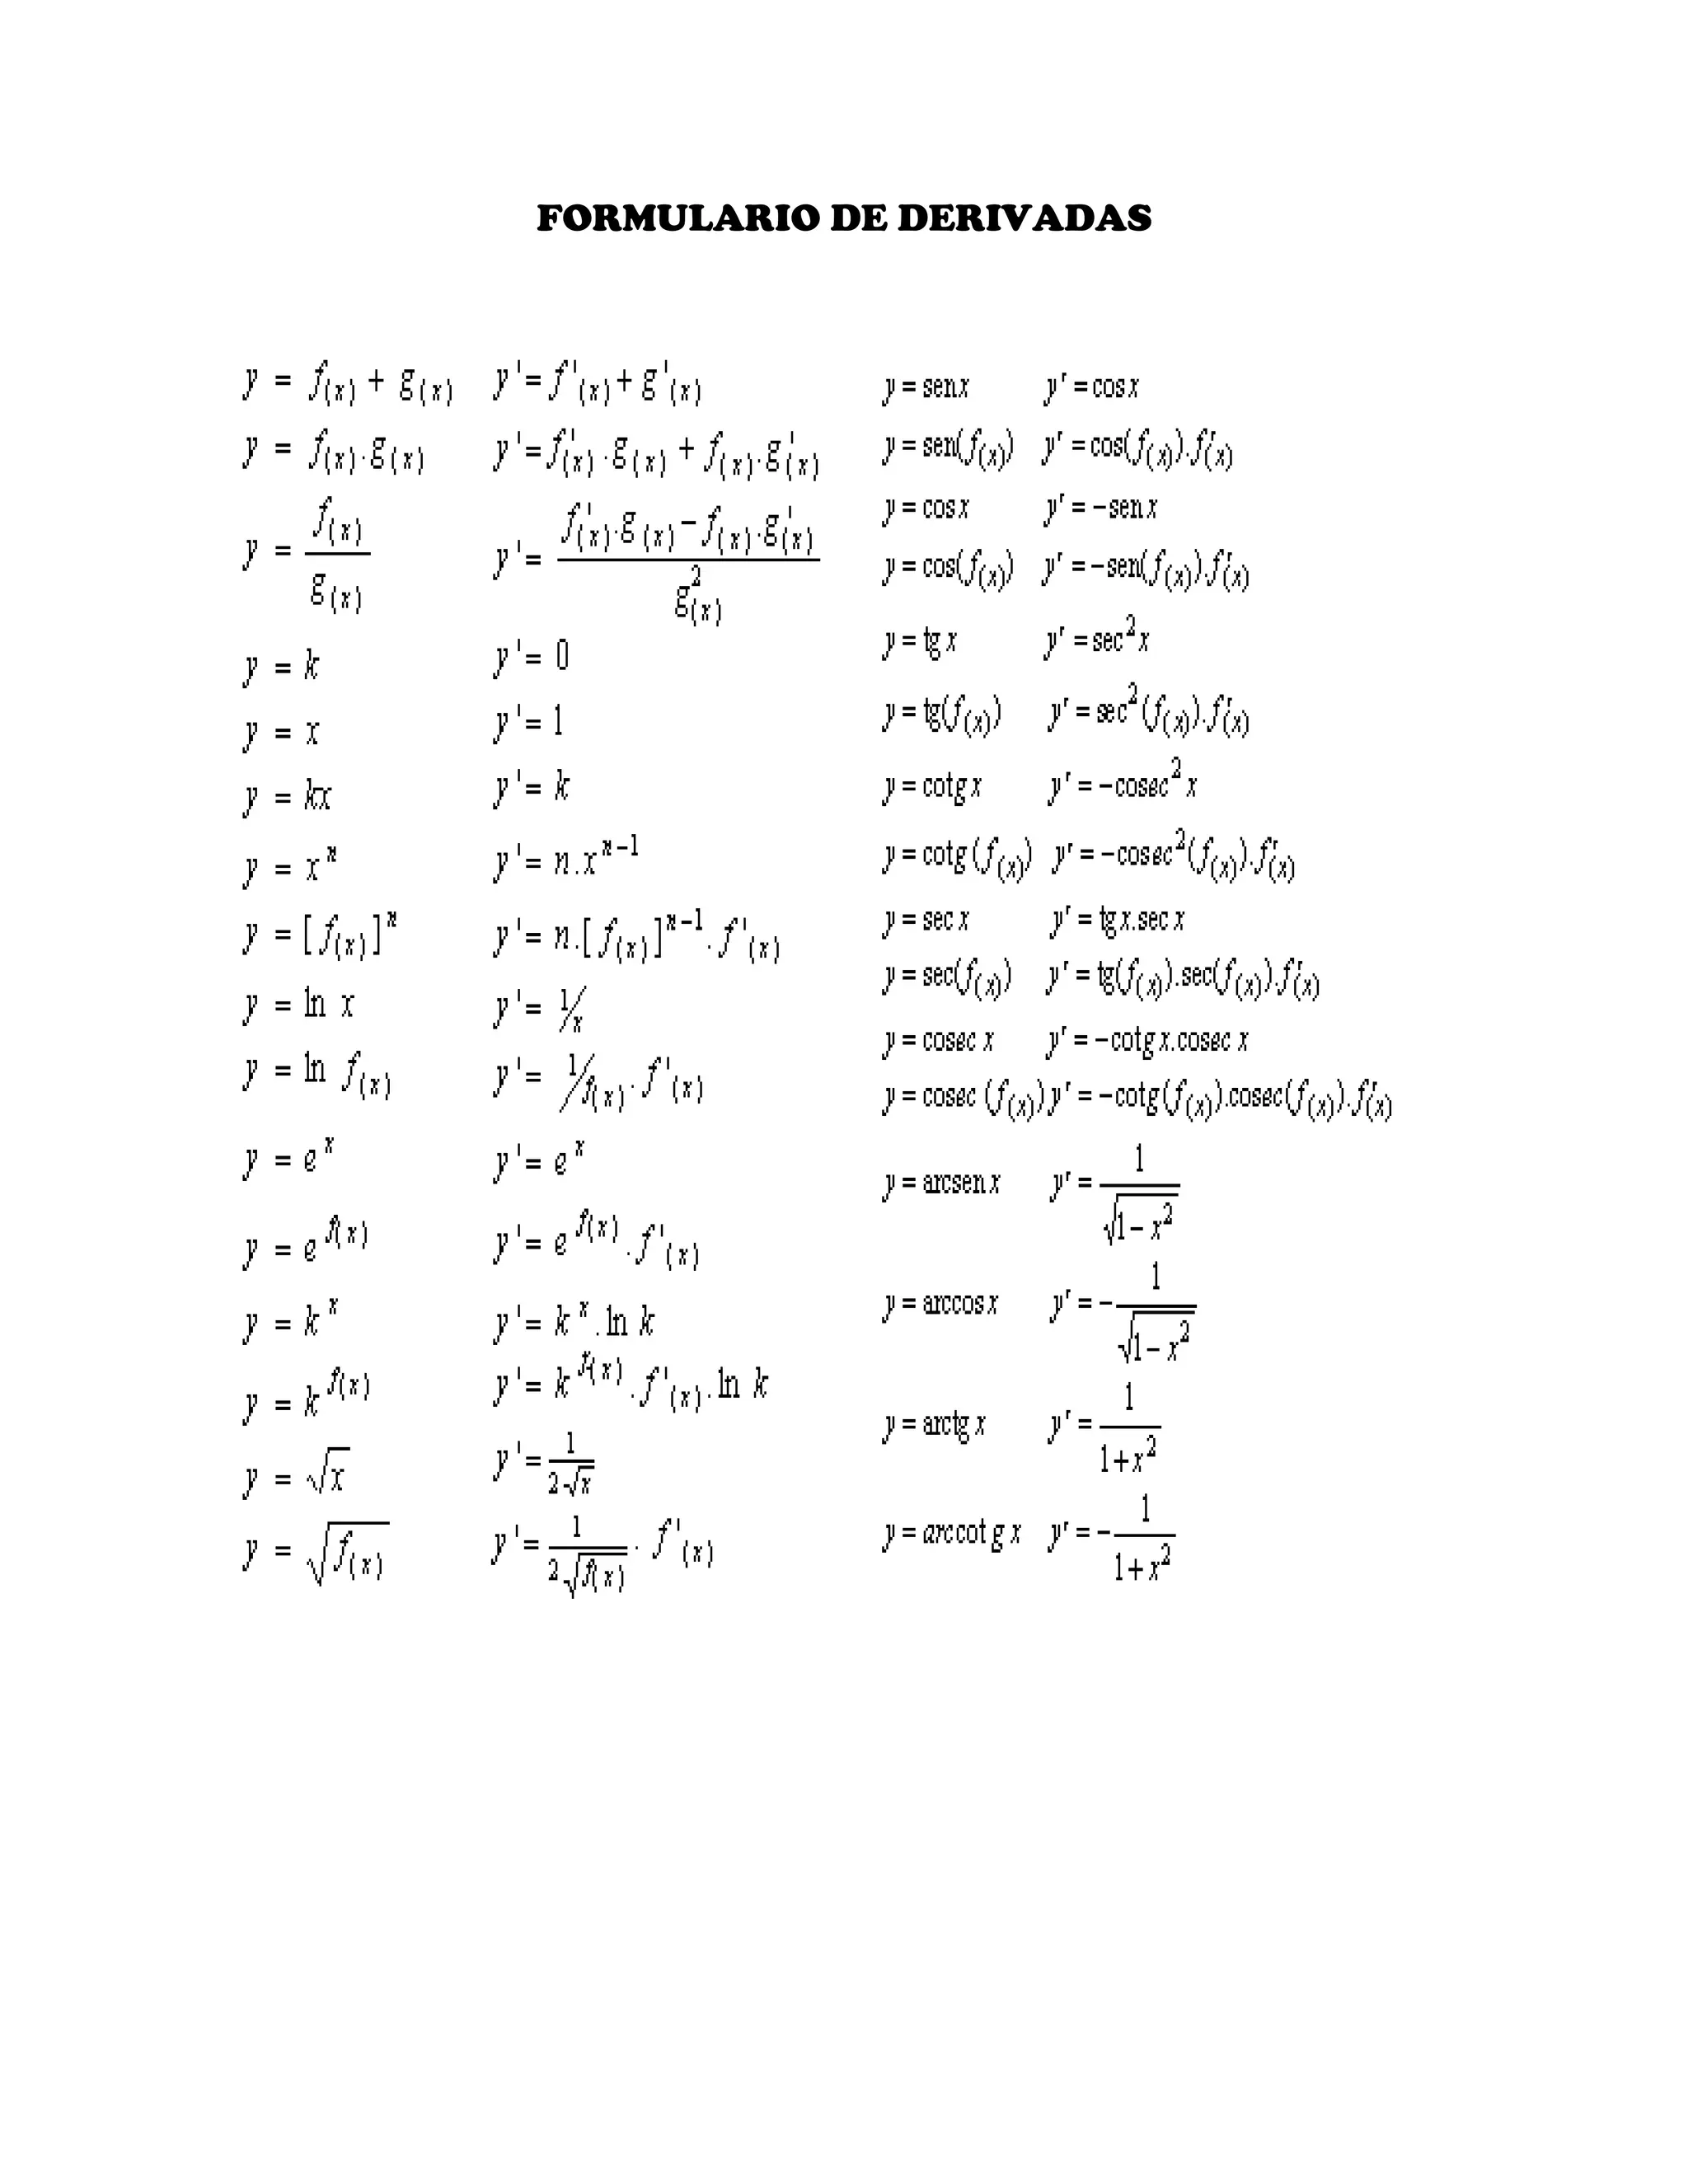 FORMULARIO DE DERIVADAS
y = f(x) + g(x)    y' = f'(x) + g'(x)
y = f(x).g(x)    y' = f'(x).g(x) + f(x).g'(x)
y = f(x)/g(x)    y' = (f'(x).g(x) − f(x).g'(x))/g²(x)
y = k    y' = 0
y = x    y' = 1
y = kx    y' = k
y = xⁿ    y' = n.xⁿ⁻¹
y = [f(x)]ⁿ    y' = n.[f(x)]ⁿ⁻¹.f'(x)
y = ln x    y' = 1/x
y = ln f(x)    y' = 1/f(x).f'(x)
y = e^x    y' = e^x
y = e^f(x)    y' = e^f(x).f'(x)
y = k^x    y' = k^x.ln k
y = k^f(x)    y' = k^f(x).f'(x).ln k
y = √x    y' = 1/(2√x)
y = √f(x)    y' = 1/(2√f(x)).f'(x)
y = sen x    y' = cos x
y = sen(f(x))    y' = cos(f(x)).f'(x)
y = cos x    y' = −sen x
y = cos(f(x))    y' = −sen(f(x)).f'(x)
y = tg x    y' = sec² x
y = tg(f(x))    y' = sec²(f(x)).f'(x)
y = cotg x    y' = −cosec² x
y = cotg(f(x))    y' = −cosec²(f(x)).f'(x)
y = sec x    y' = tg x.sec x
y = sec(f(x))    y' = tg(f(x)).sec(f(x)).f'(x)
y = cosec x    y' = −cotg x.cosec x
y = cosec (f(x))    y' = −cotg(f(x)).cosec(f(x)).f'(x)
y = arcsen x    y' = 1/√(1−x²)
y = arccos x    y' = −1/√(1−x²)
y = arctg x    y' = 1/(1+x²)
y = arccotg x    y' = −1/(1+x²)